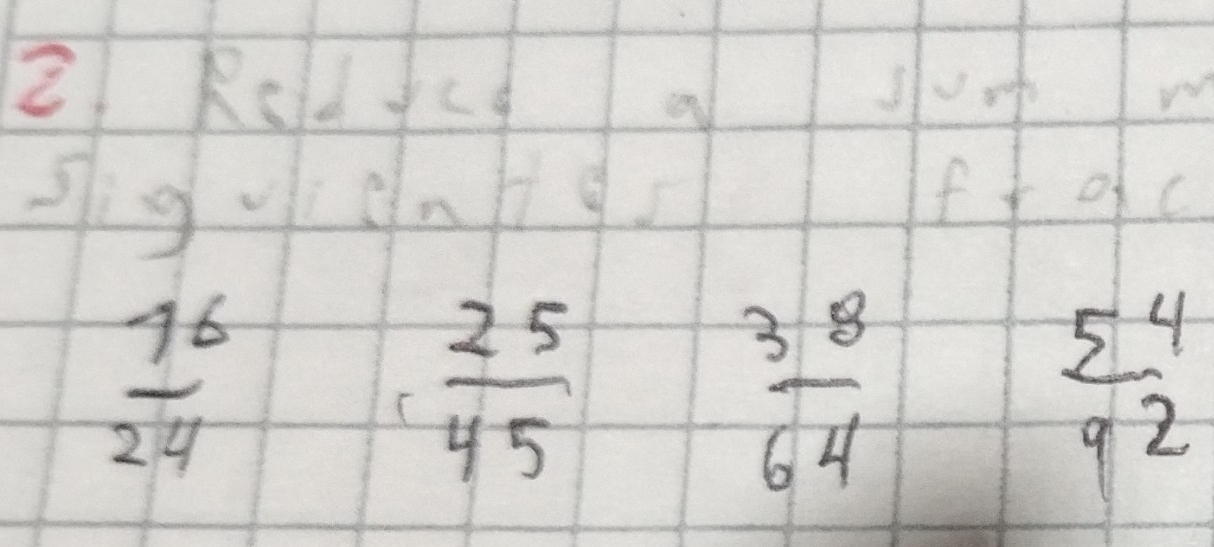 2. Reduce a sum m
siguientes frac
16/24 25/45 38/64 54/92